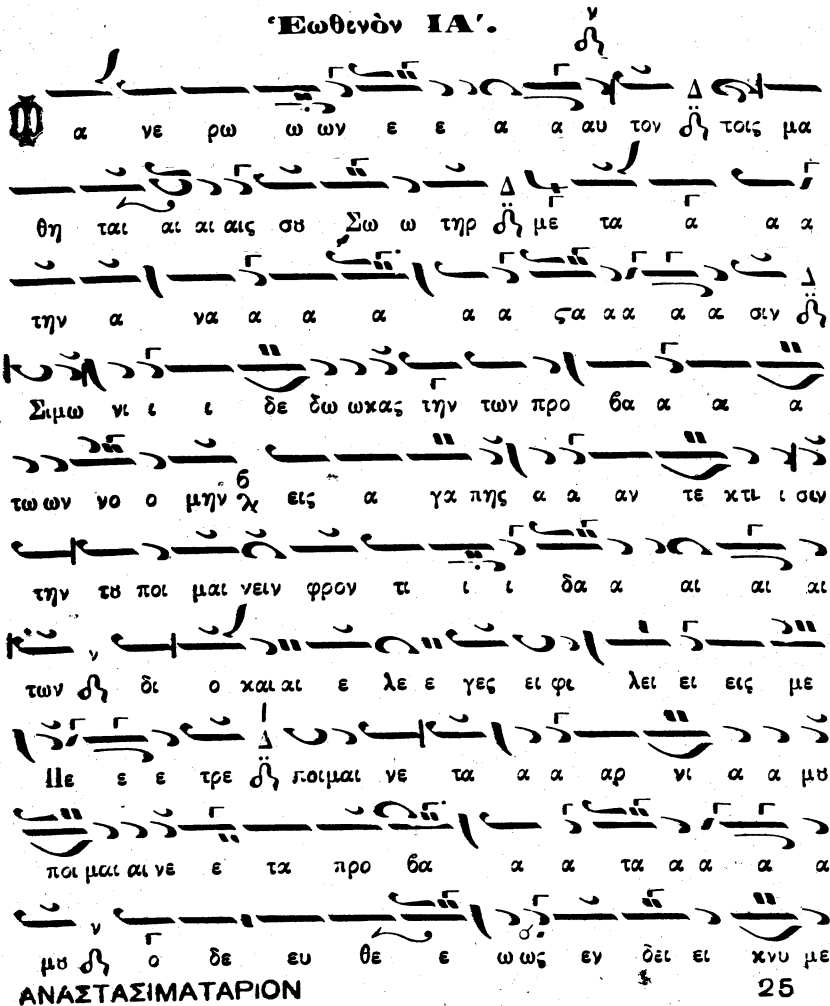 Ἑωθινὸν ΙΑ΄.
Φα νε ρω ω ων ε ε α α αυ τον τοις μα
θη ται αι αι αις σȣ Σω ω τηρ με τα α α α
την α να α α α α α ςα α α α α σιν
Σιμω νι ι ι δε δω ωκας την των προ βα α α α
τω ων νο ο μην εις α γα πης α α αν τε κτι ι σιν
την τȣ ποι μαι νειν φρον τι ι ι δα α αι αι αι
των δι ο και αι ε λε ε γες ει φι λει ει εις με
Πε ε ε τρε ποιμαι νε τα α α αρ νι α α μȣ
ποι μαι αι νε ε τα προ βα α α τα α α α α
μȣ ο δε ευ θε ε ω ως εν δει ει κνυ με
ΑΝΑΣΤΑΣΙΜΑΤΑΡΙΟΝ 25